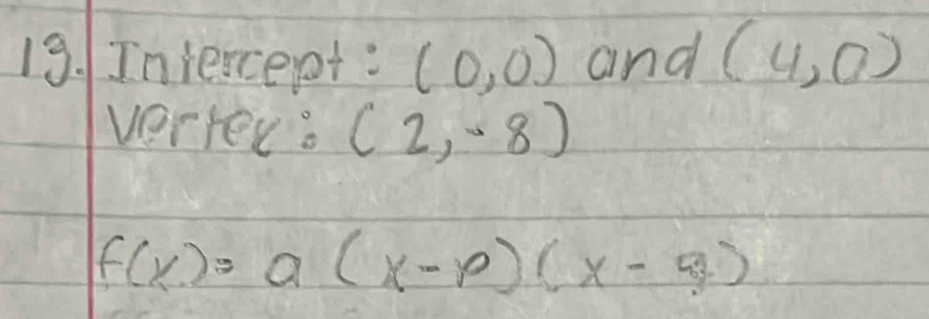 13. Intercept: (0,0) and (4,0)
vertex: (2,-8)
f(x)= a (x-p)(x-q)